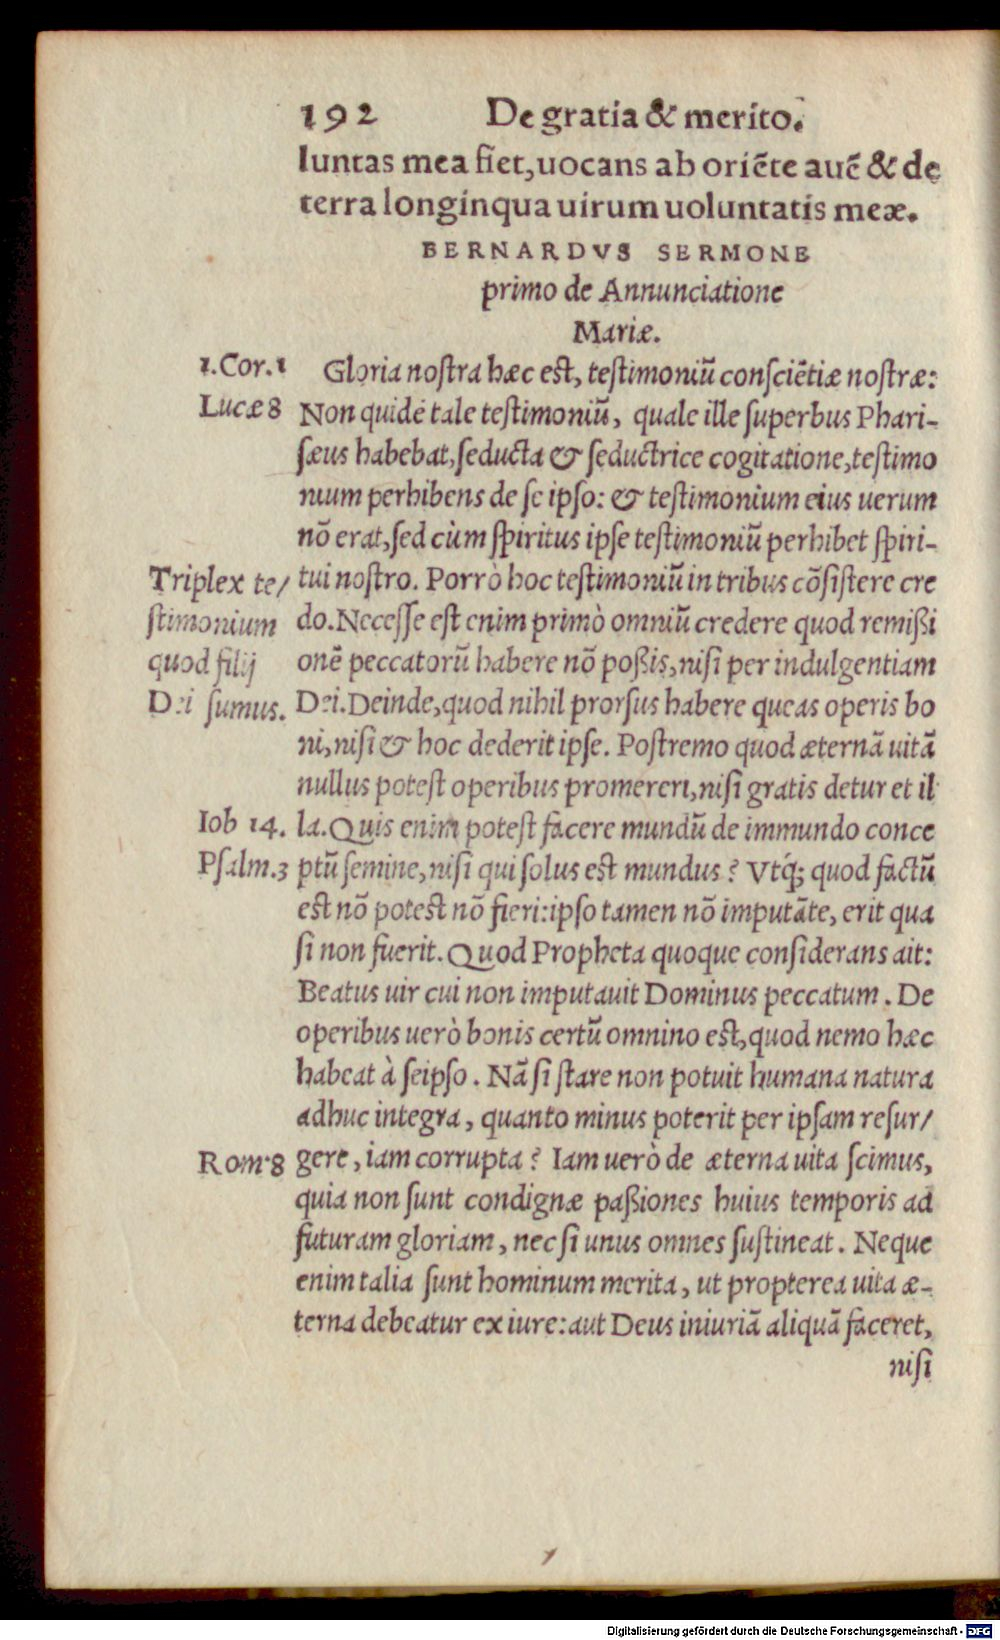 192 De gratia & merito.
luntas mea fiet, uocans ab oriẽte auẽ & de
terra longinqua uirum uoluntatis meæ.
BERNARDVS SERMONE
primo de Annunciatione
Mariæ.
1.Cor.1 Gloria nostra hæc est, testimoniũ consciẽtiæ nostræ:
Lucæ 8 Non quidẽ tale testimoniũ, quale ille superbus Phari-
sæus habebat, seducta & seductrice cogitatione, testimo
nium perhibens de se ipso: & testimonium eius uerum
nõ erat, sed cùm spiritus ipse testimoniũ perhibet spiri-
Triplex te/ tui nostro. Porrò hoc testimoniũ in tribus cõsistere cre
stimonium do. Necesse est enim primò omniũ credere quod remißi
quod filij onẽ peccatorũ habere nõ poßis, nisi per indulgentiam
Dei sumus. Dei. Deinde, quod nihil prorsus habere queas operis bo
ni, nisi & hoc dederit ipse. Postremo quod æternã uitã
nullus potest operibus promereri, nisi gratis detur et il
Iob 14. la. Quis enim potest facere mundũ de immundo conce
Psalm.3 ptũ semine, nisi qui solus est mundus? Vtq́; quod factũ
est nõ potest nõ fieri: ipso tamen nõ imputãte, erit qua
si non fuerit. Quod Propheta quoque considerans ait:
Beatus uir cui non imputauit Dominus peccatum. De
operibus uerò bonis certũ omnino est, quod nemo hæc
habeat à seipso. Nã si stare non potuit humana natura
adhuc integra, quanto minus poterit per ipsam resur/
Rom.8 gere, iam corrupta? Iam uerò de æterna uita scimus,
quia non sunt condignæ paßiones huius temporis ad
futuram gloriam, nec si unus omnes sustineat. Neque
enim talia sunt hominum merita, ut propterea uita æ-
terna debeatur ex iure: aut Deus iniuriã aliquã faceret,
nisi
Digitalisierung gefördert durch die Deutsche Forschungsgemeinschaft - DFG